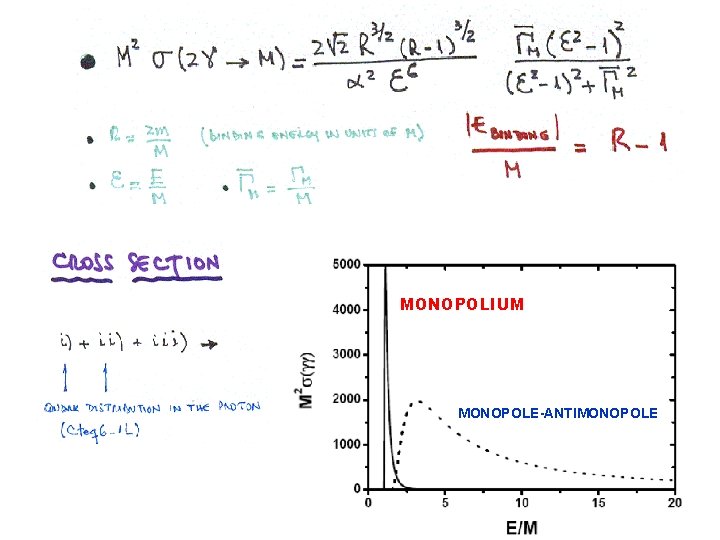 • M² σ(2γ → M) = 2√2 R^{3/2} (R-1)^{3/2} / α² ε⁶   Γ̄_M (ε²-1)² / (ε²-1)² + Γ̄_M²
• R = 2m / M (BINDING ENERGY IN UNITS OF M)
|E BINDING| / M = R - 1
• ε = E / M   • Γ̄_M = Γ_M / M
CROSS SECTION
i) + ii) + iii) →
QUARK DISTRIBUTION IN THE PROTON
(Cteq6-1L)
5000
4000
3000
2000
1000
0
M²σ(γγ)
MONOPOLIUM
MONOPOLE-ANTIMONOPOLE
0 5 10 15 20
E/M